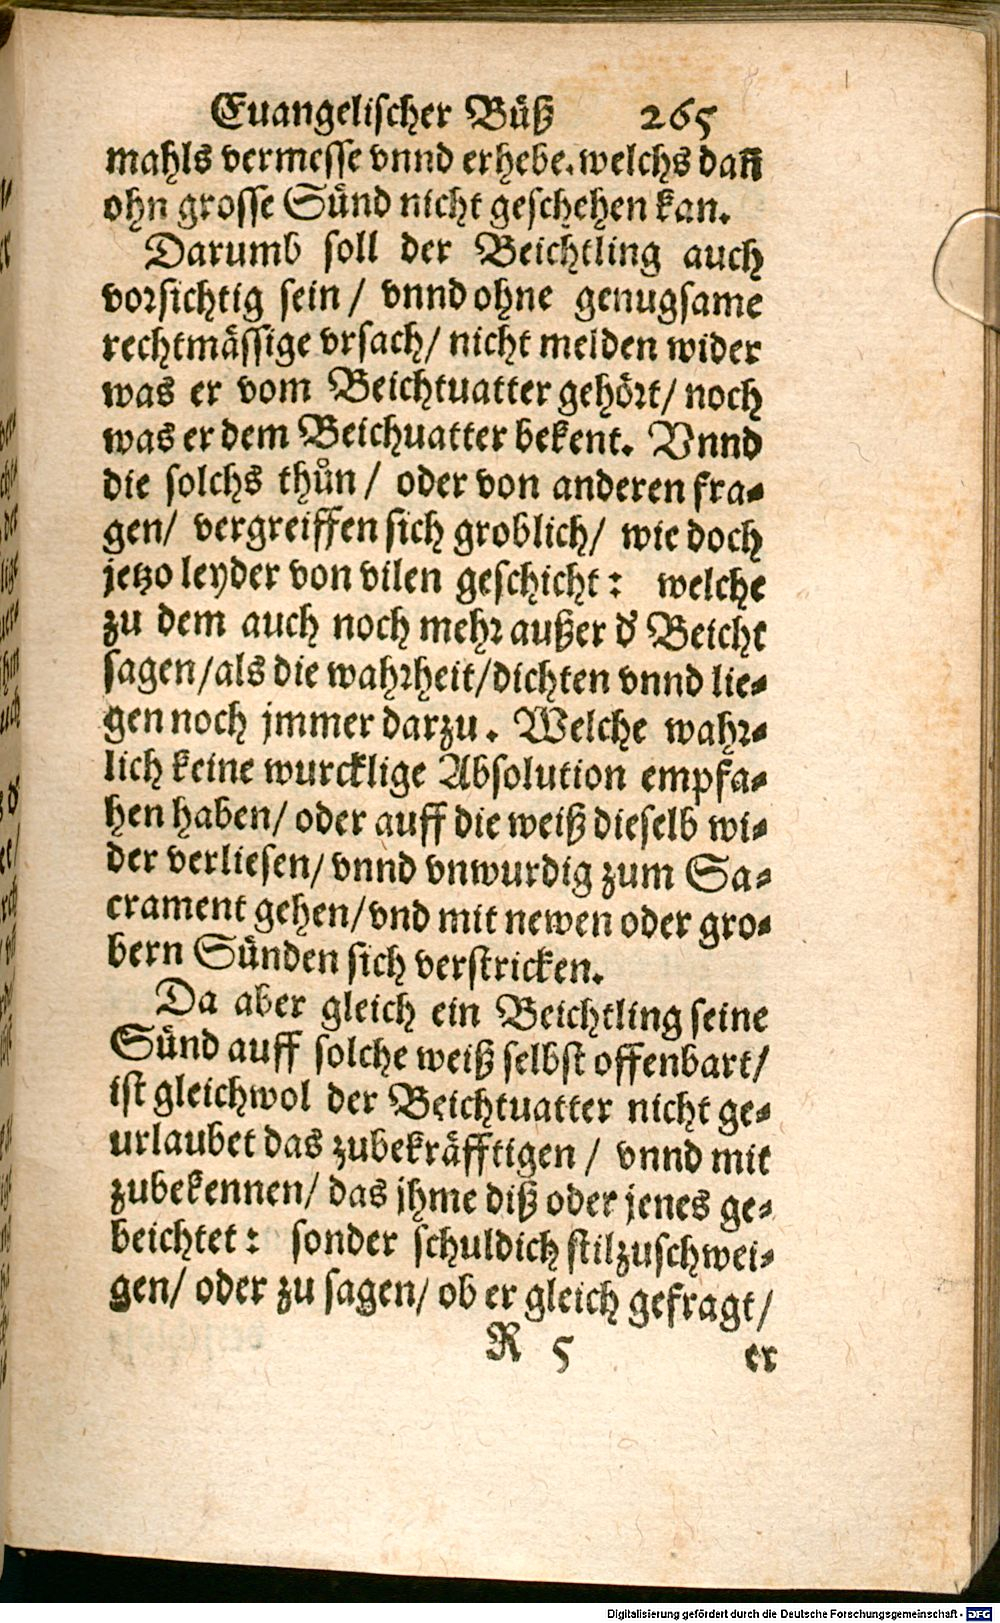 Euangelischer Büß 265
mahls vermesse vnnd erhebe. welchs dañ
ohn grosse Sünd nicht geschehen kan.
Darumb soll der Beichtling auch
vorsichtig sein / vnnd ohne genugsame
rechtmässige vrsach / nicht melden wider
was er vom Beichtuatter gehört / noch
was er dem Beichuatter bekent. Vnnd
die solchs thůn / oder von anderen fra⸗
gen / vergreiffen sich groblich / wie doch
jetzo leyder von vilen geschicht: welche
zu dem auch noch mehr außer d' Beicht
sagen / als die wahrheit / dichten vnnd lie⸗
gen noch jmmer darzu. Welche wahr⸗
lich keine wurcklige Absolution empfa⸗
hen haben / oder auff die weiß dieselb wi⸗
der verliesen / vnnd vnwurdig zum Sa⸗
crament gehen / vnd mit newen oder gro⸗
bern Sünden sich verstricken.
Da aber gleich ein Beichtling seine
Sünd auff solche weiß selbst offenbart /
ist gleichwol der Beichtuatter nicht ge⸗
urlaubet das zubekräfftigen / vnnd mit
zubekennen / das jhme diß oder jenes ge⸗
beichtet: sonder schuldich stilzuschwei⸗
gen / oder zu sagen / ob er gleich gefragt /
R 5 er
Digitalisierung gefördert durch die Deutsche Forschungsgemeinschaft - DFG